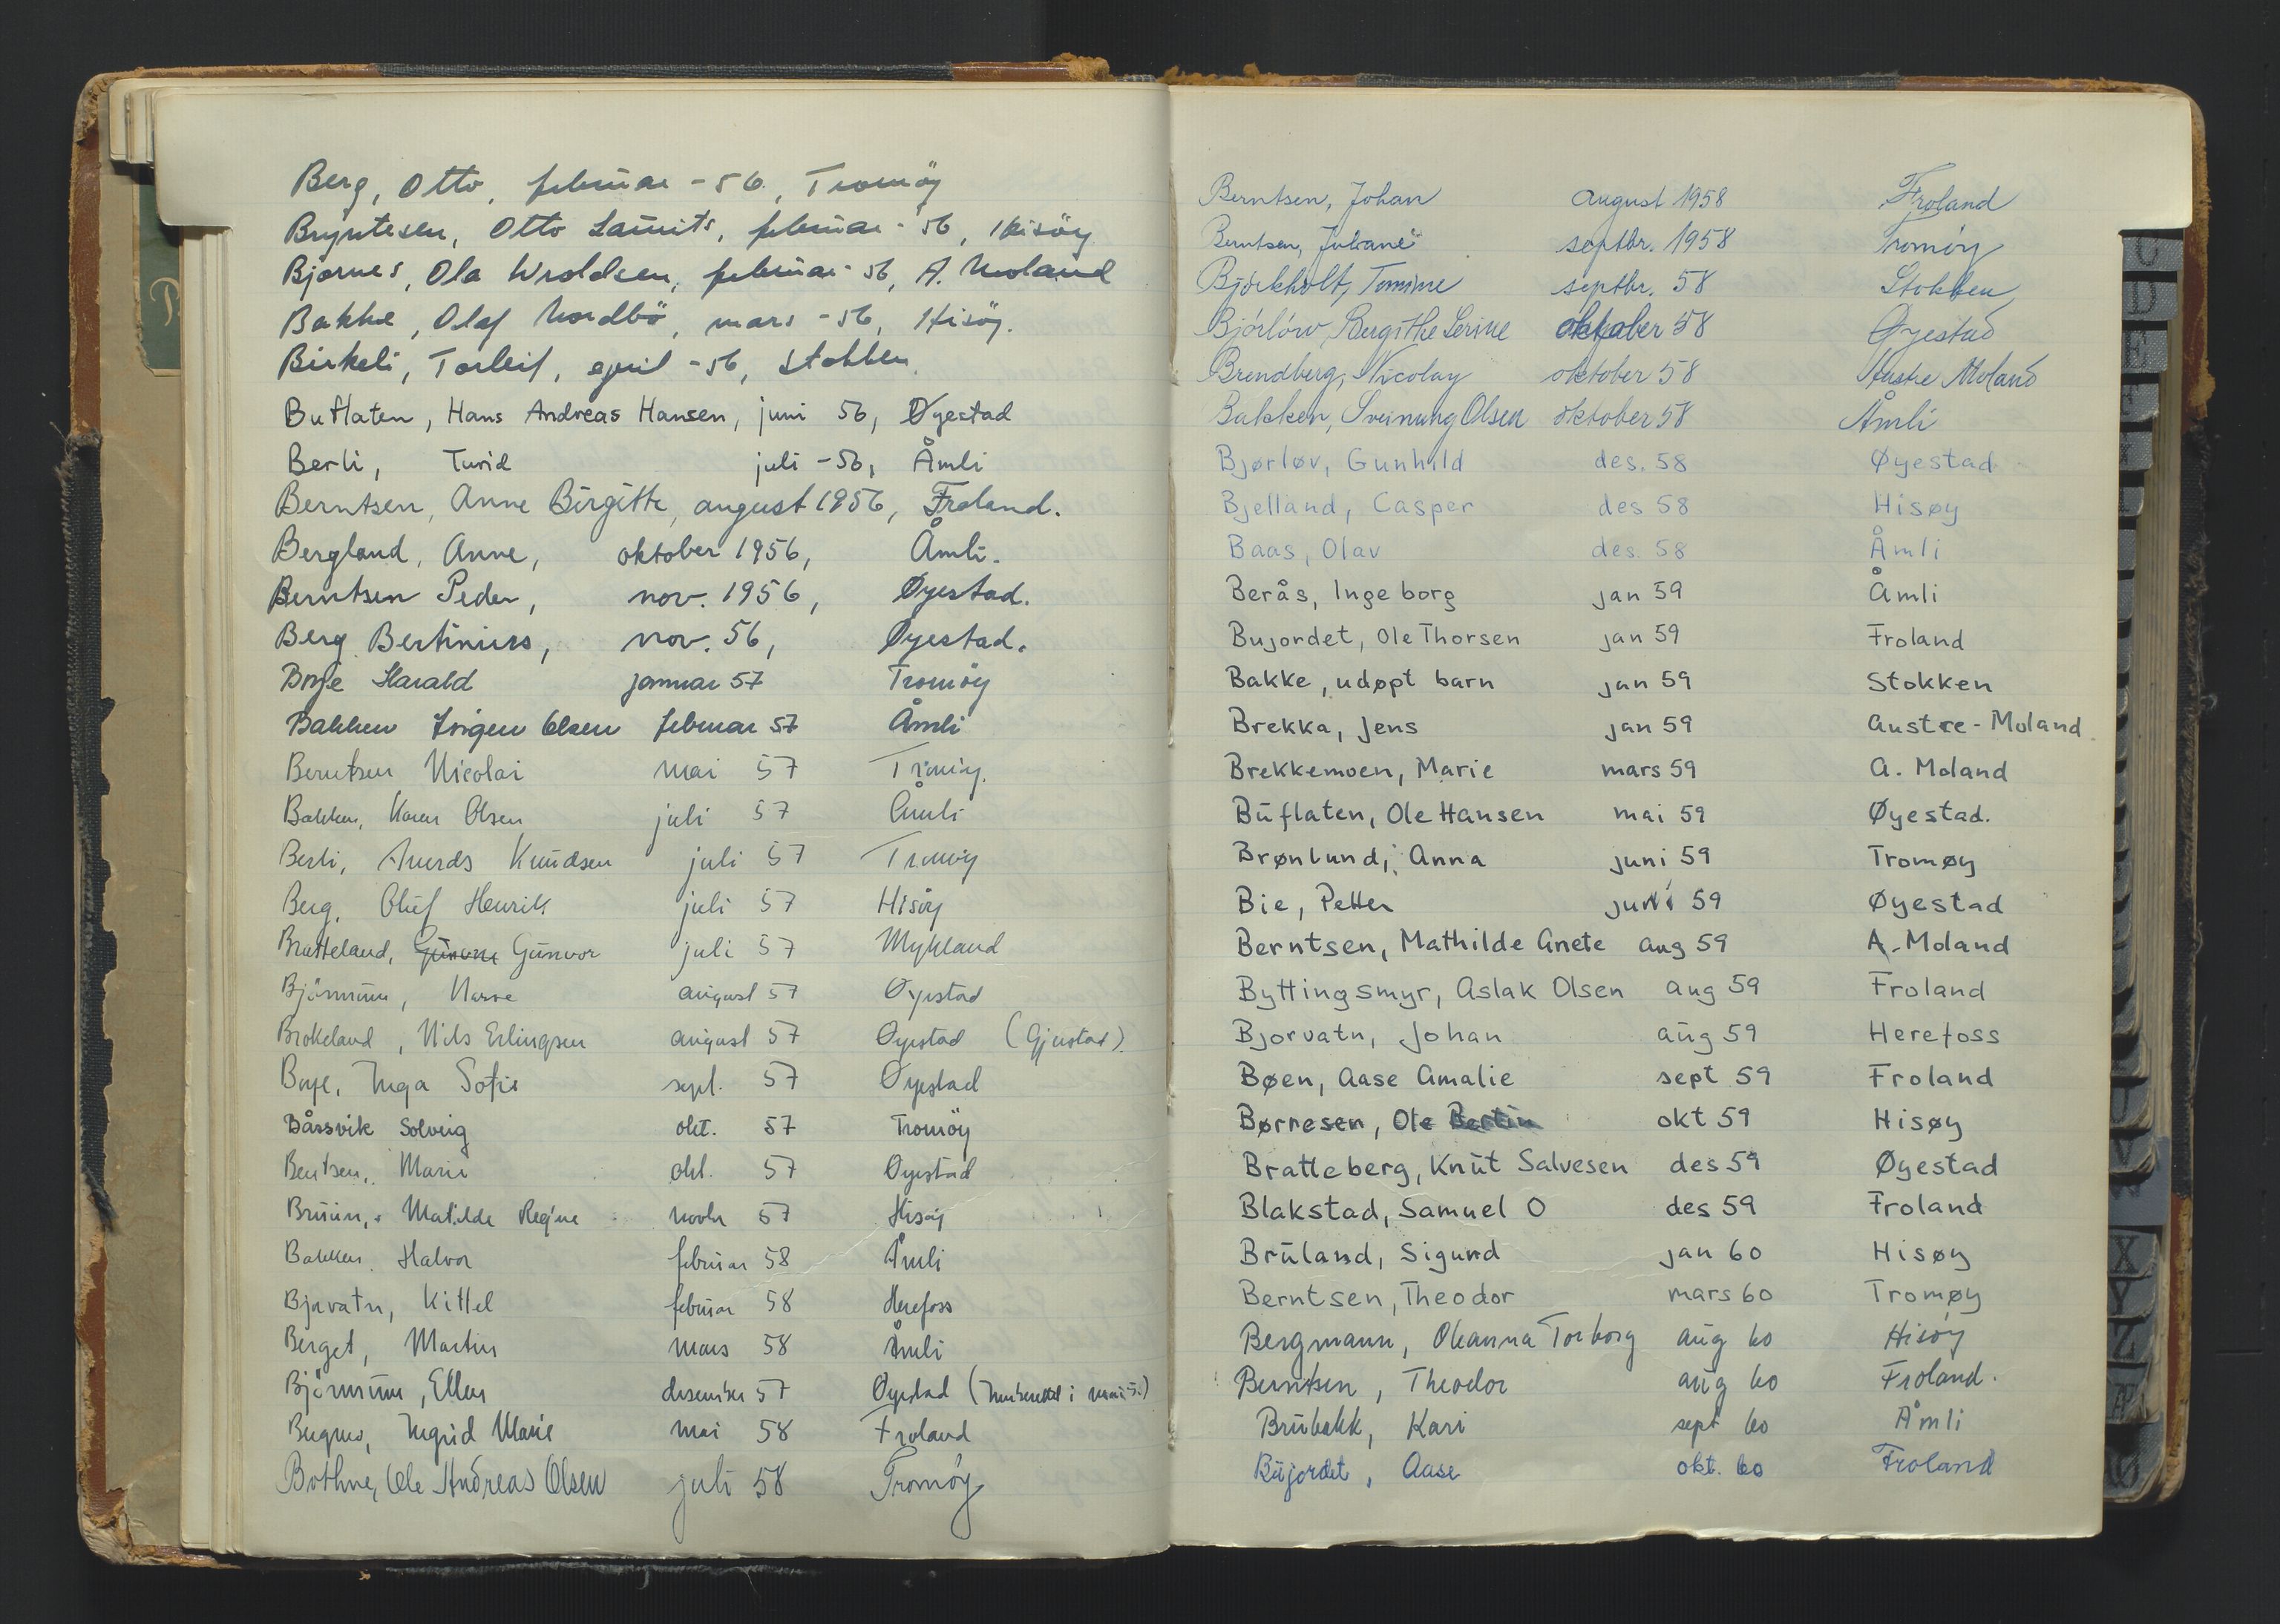 Berg, Otto, februar -56, Tromöy
Bryntesen, Otto Lauritz, februar - 56, Hisöy
Bjornes, Ola Wroldsen, februar - 56, A. Moland
Bakke, Olaf Nordbö, mars - 56, Hisöy.
Birkeli, Torleif, april - 56, Stokken.
Buflaten, Hans Andreas Hansen, juni 56, Øyestad
Berli, Turid juli - 56, Åmli
Berntsen, Anne Birgitte, august 1956, Froland.
Bergland, Anne, oktober 1956, Åmli.
Berntsen Peder, nov. 1956, Øyestad.
Berg Bertinius, nov. 56, Øyestad.
Harald januar 57 Tromöy
Bakken Jörgen Olsen februar 57 Åmli
Berntsen Nicolai mai 57 Tromöy.
Bakken, Karen Olsen juli 57 Åmli
Berli, Knudsen juli 57 Tromöy
Berg, Oluf Henrik juli 57 Hisöy
Bratteland, Gunvor juli 57 Mykland
august 57 Øyestad
Brokeland, Nils Erlingsen august 57 Øyestad (Gjustad).
Boye, Inga Sofie sept. 57 Øyestad
Båssvik Solveig okt. 57 Tromöy
Bentsen, Marie okt. 57 Øyestad
Bruun, Matilde Regine novbr 57 Hisöy
Bakken, Halvor februar 58 Åmli
Bjorvatn, Kittel februar 58 Herefoss
Berget, Martin mars 58 Åmli
Ellen desember 57 Øyestad (Innberettet i mai 5.)
Ingrid Marie mai 58 Froland
Bothne, Ole Andreas Olsen juli 58 Tromöy
Berntsen, Johan august 1958 Froland
Berntsen, Juliane septbr. 1958 Tromöy
Björkholt, Tomine septbr. 58 Stokken
Björlöw, Bergithe Serine oktober 58 Øyestad
Brendberg, Nicolay oktober 58 Austre Moland
Bakken, Sveinung Olsen oktober 58 Åmli
Bjørløv, Gunhild des. 58 Øyestad
Bjelland, Casper des 58 Hisøy
Baas, Olav des. 58 Åmli
Berås, Ingeborg jan 59 Åmli
Bujordet, Ole Thorsen jan 59 Froland
Bakke, udøpt barn jan 59 Stokken
Brekka, Jens jan 59 Austre - Moland.
Brekkemoen, Marie mars 59 A. Moland
Buflaten, Ole Hansen mai 59 Øyestad.
Brønlund, Anna juni 59 Tromøy
Bie, Petter juni 59 Øyestad
Berntsen, Mathilde Anete aug 59 A. Moland
Byttingsmyr, Aslak Olsen aug 59 Froland
Bjorvatn, Johan aug 59 Herefoss
Bøen, Aase Amalie sept 59 Froland
Børresen, Ole Bertin okt 59 Hisøy
Bratteberg, Knut Salvesen des 59 Øyestad
Blakstad, Samuel O des 59 Froland
Bruland, Sigurd jan 60 Hisøy
Berntsen, Theodor mars 60 Tromøy
Bergmann, Oleanna Torborg aug 60 Hisöy
Berntsen, Theodor aug 60 Froland.
Brubakk, Kari sept 60 Åmli
Bujordet, Aase okt. 60 Froland
C
D
E
U
V
X
Y
Z
Æ
Ø